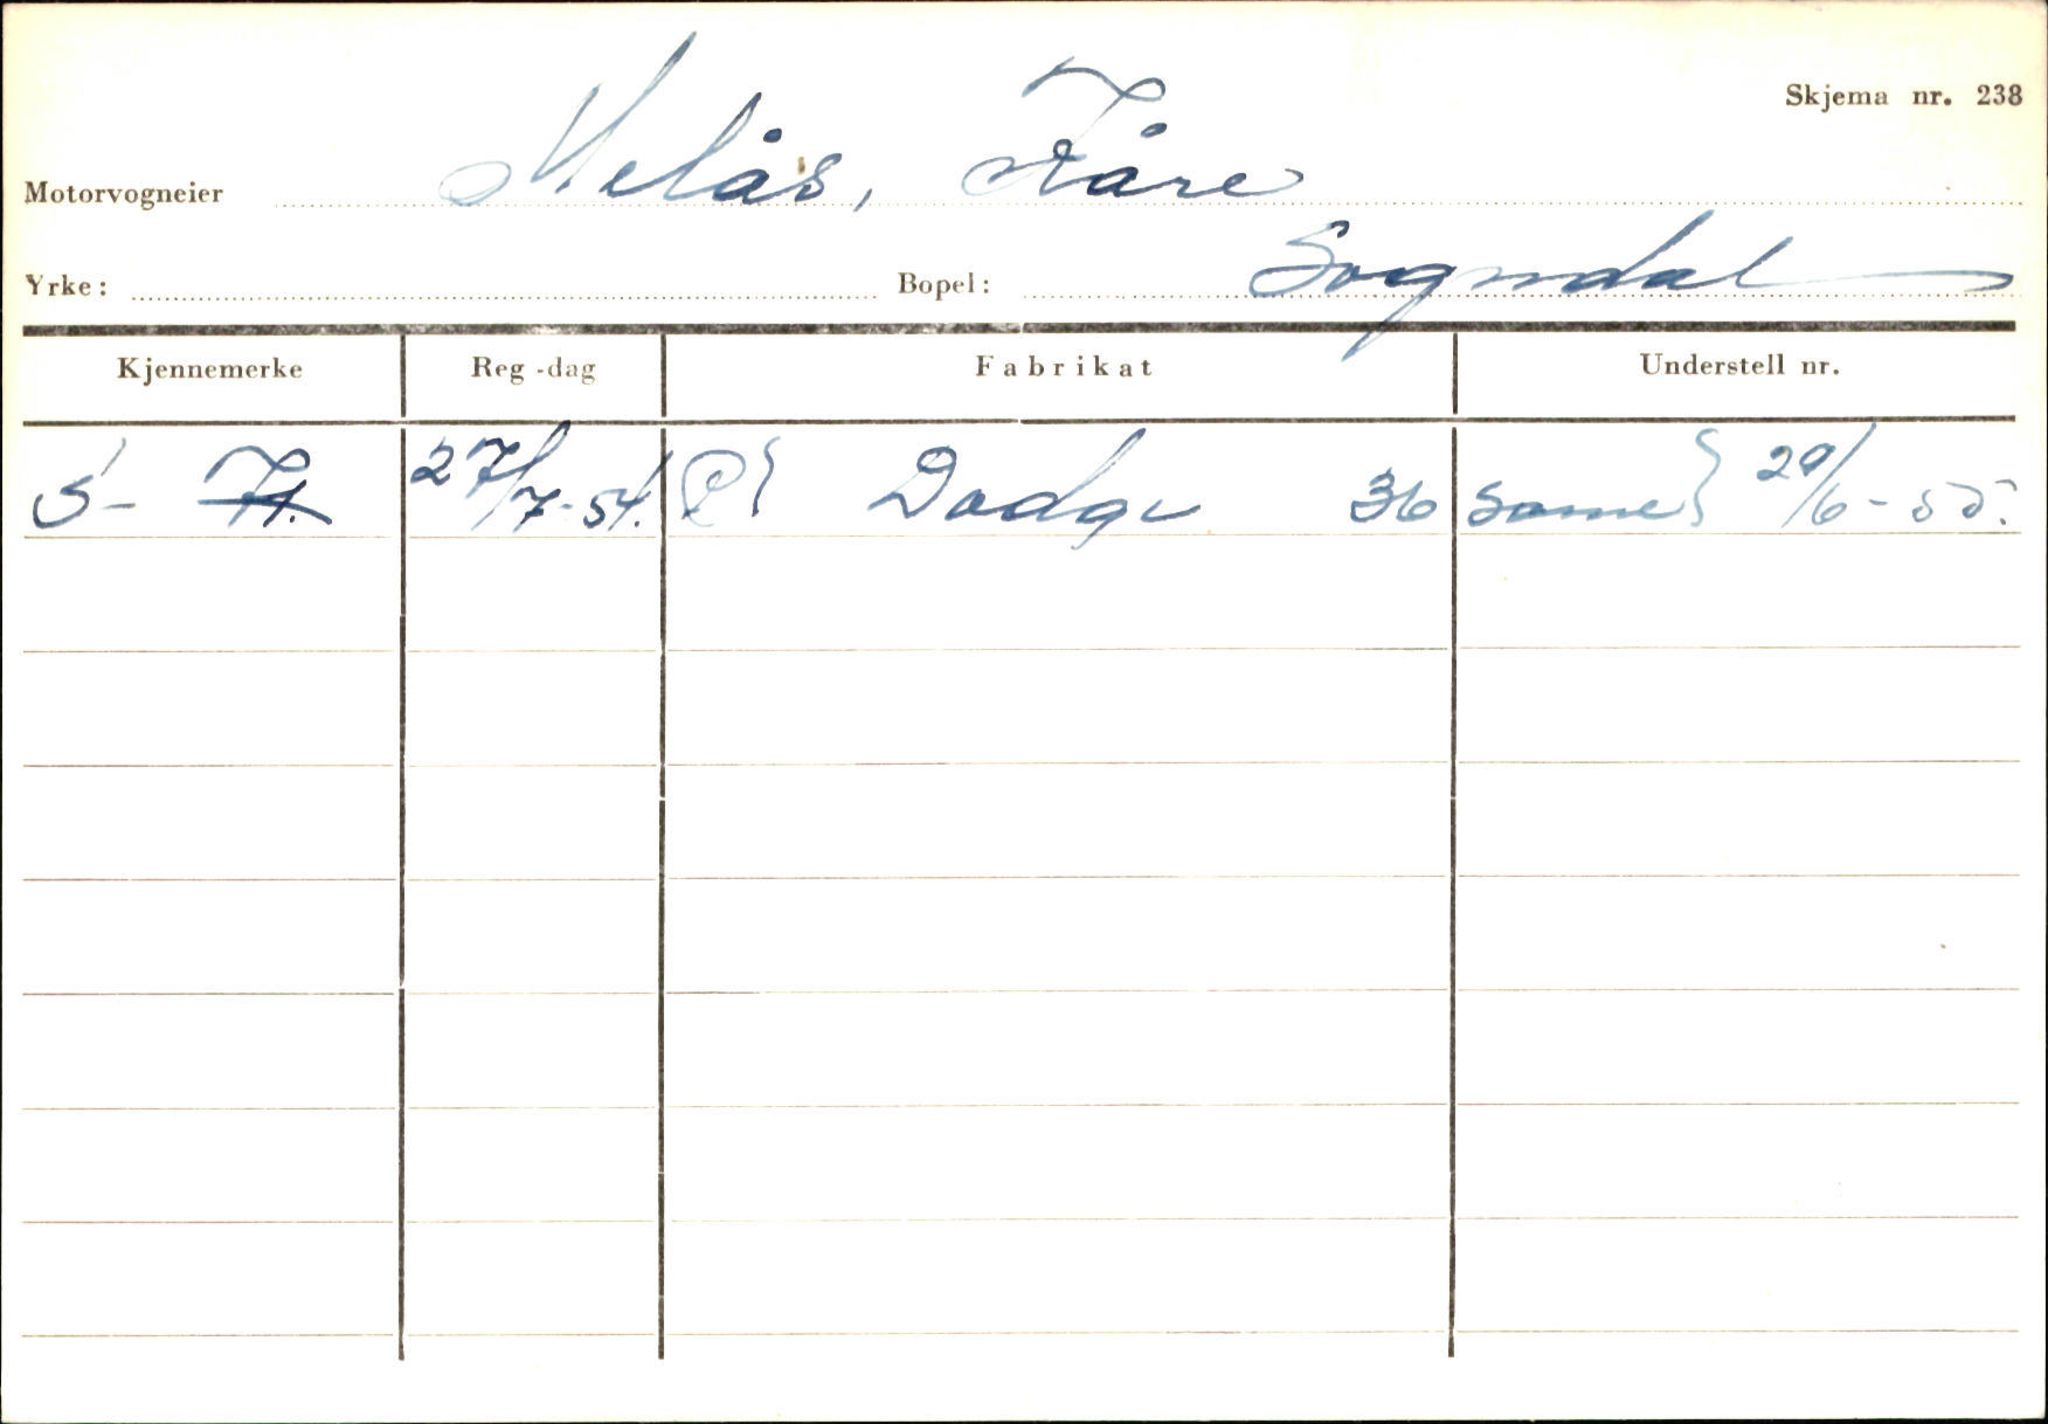 Skjema nr. 238
Motorvogneier Melås, Kåre
Yrke: Bopel: Sogndal
Kjennemerke Reg-dag Fabrikat Understell nr.
S- 71. 27/7-54. P} Dodge 36 same} 29/6-55.